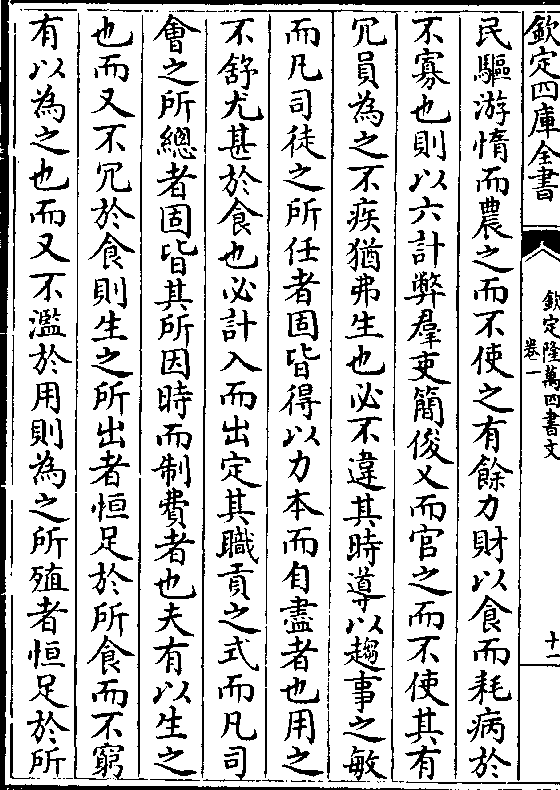 欽定四庫全書
欽定隆萬四書文
卷一
十一
民驅游惰而農之而不使之有餘力財以食而耗病於
不寡也則以六計弊羣吏簡俊乂而官之而不使其有
冗員為之不疾猶弗生也必不違其時導以趨事之敏
而凡司徒之所任者固皆得以力本而自盡者也用之
不舒尤甚於食也必計入而出定其職貢之式而凡司
會之所總者固皆其所因時而制費者也夫有以生之
也而又不冗於食則生之所出者恒足於所食而不窮
有以為之也而又不濫於用則為之所殖者恒足於所